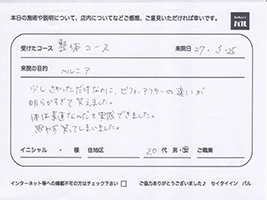 本日の施術や説明について、店内についてなどご感想、ご意見いただければ幸いです。
パル
受けたコース 整体コース 来院日 27.3.25
来院の目的 ヘルニア
少しさわっただけなのに、ビフォーアフターの違いが
明らかすぎて笑えました。
体は素直なんだと実感できました。
思わず笑ってしまいました。
イニシャル ・ 様 住地区 20代 男・女 ご職業
インターネット等への掲載不可の方はチェック下さい □ ご協力ありがとうございました♪ セイタイイン パル